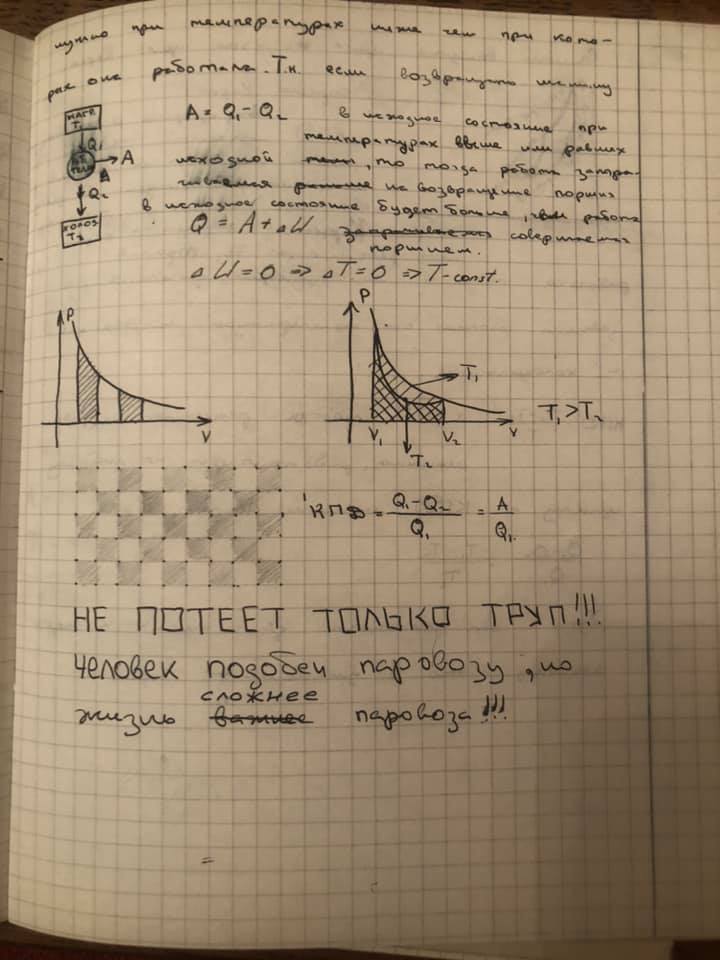 нужно при температурах ниже чем при кото-
рых она работала. Т.к. если возвращать
A = Q₁ - Q₂ в исходное состояние при
температурах выше или равных
исходной, то тогда работа затра-
чиваемая на возвращение поршня
в исходное состояние будет больше, чем работа
совершаемая
поршнем.
НАГР
T₁
Q₁
A
Q₂
ХОЛОД
T₂
Q = A + ΔU
ΔU = 0 => ΔT = 0 => T - const.
P
V
P
T₁
V₁ V₂ V
T₂
T₁ > T₂
КПД = Q₁ - Q₂ / Q₁ = A / Q₁
НЕ ПОТЕЕТ ТОЛЬКО ТРУП!!!
Человек подобен паровозу, но
сложнее
жизнь важнее паровоза!!!
=